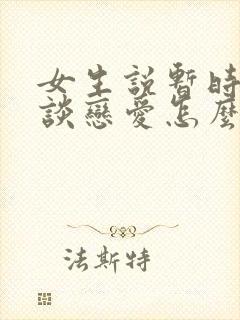 女生說暫時
談戀愛怎麼
法斯特